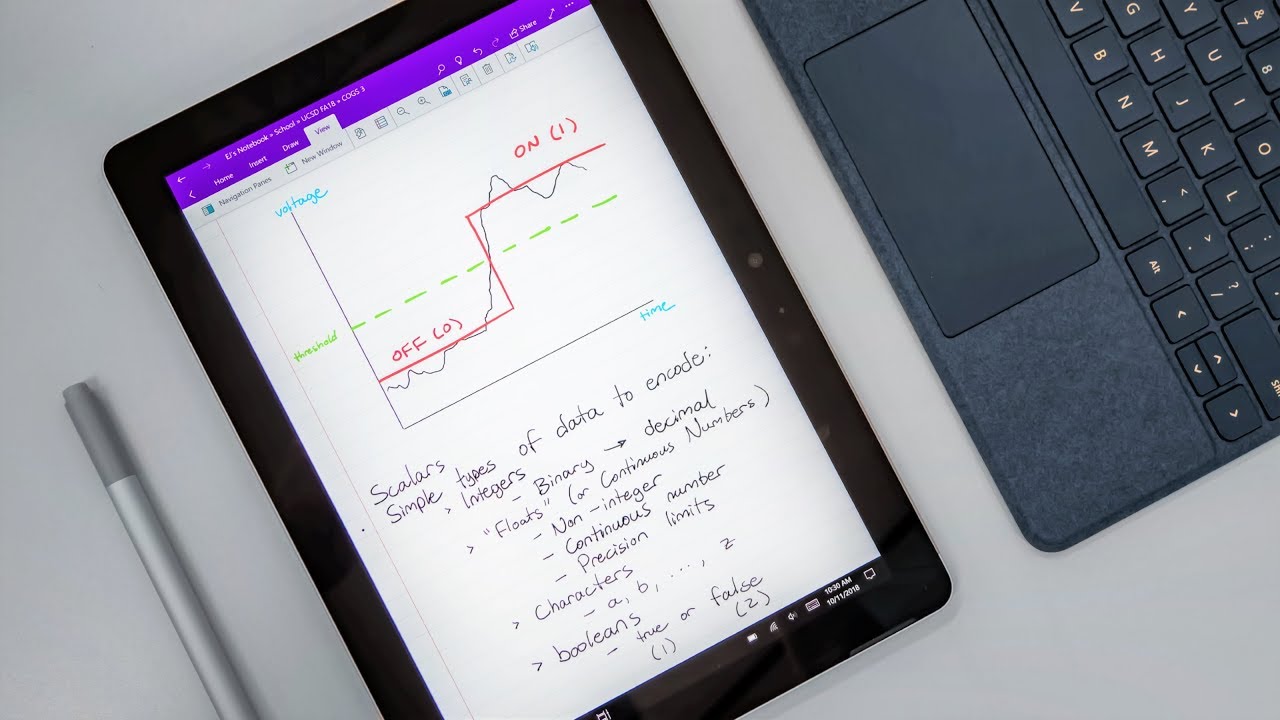 EJ's Notebook » School » UCSD FA18 » COGS 3
Share
Home Insert Draw View
Navigation Panes New Window
voltage
ON (1)
threshold
OFF (0)
time
Scalars
Simple types of data to encode:
> Integers
- Binary → decimal
> "Floats" (or Continuous Numbers)
- Non-integer
- Continuous number
- Precision limits
> Characters
- a, b, ..., z
> booleans
- true or false
(1) (2)
10:30 AM
10/11/2018
V
G
Y
&
7
B
H
U
8
N
J
I
M
K
L
Alt
?
/